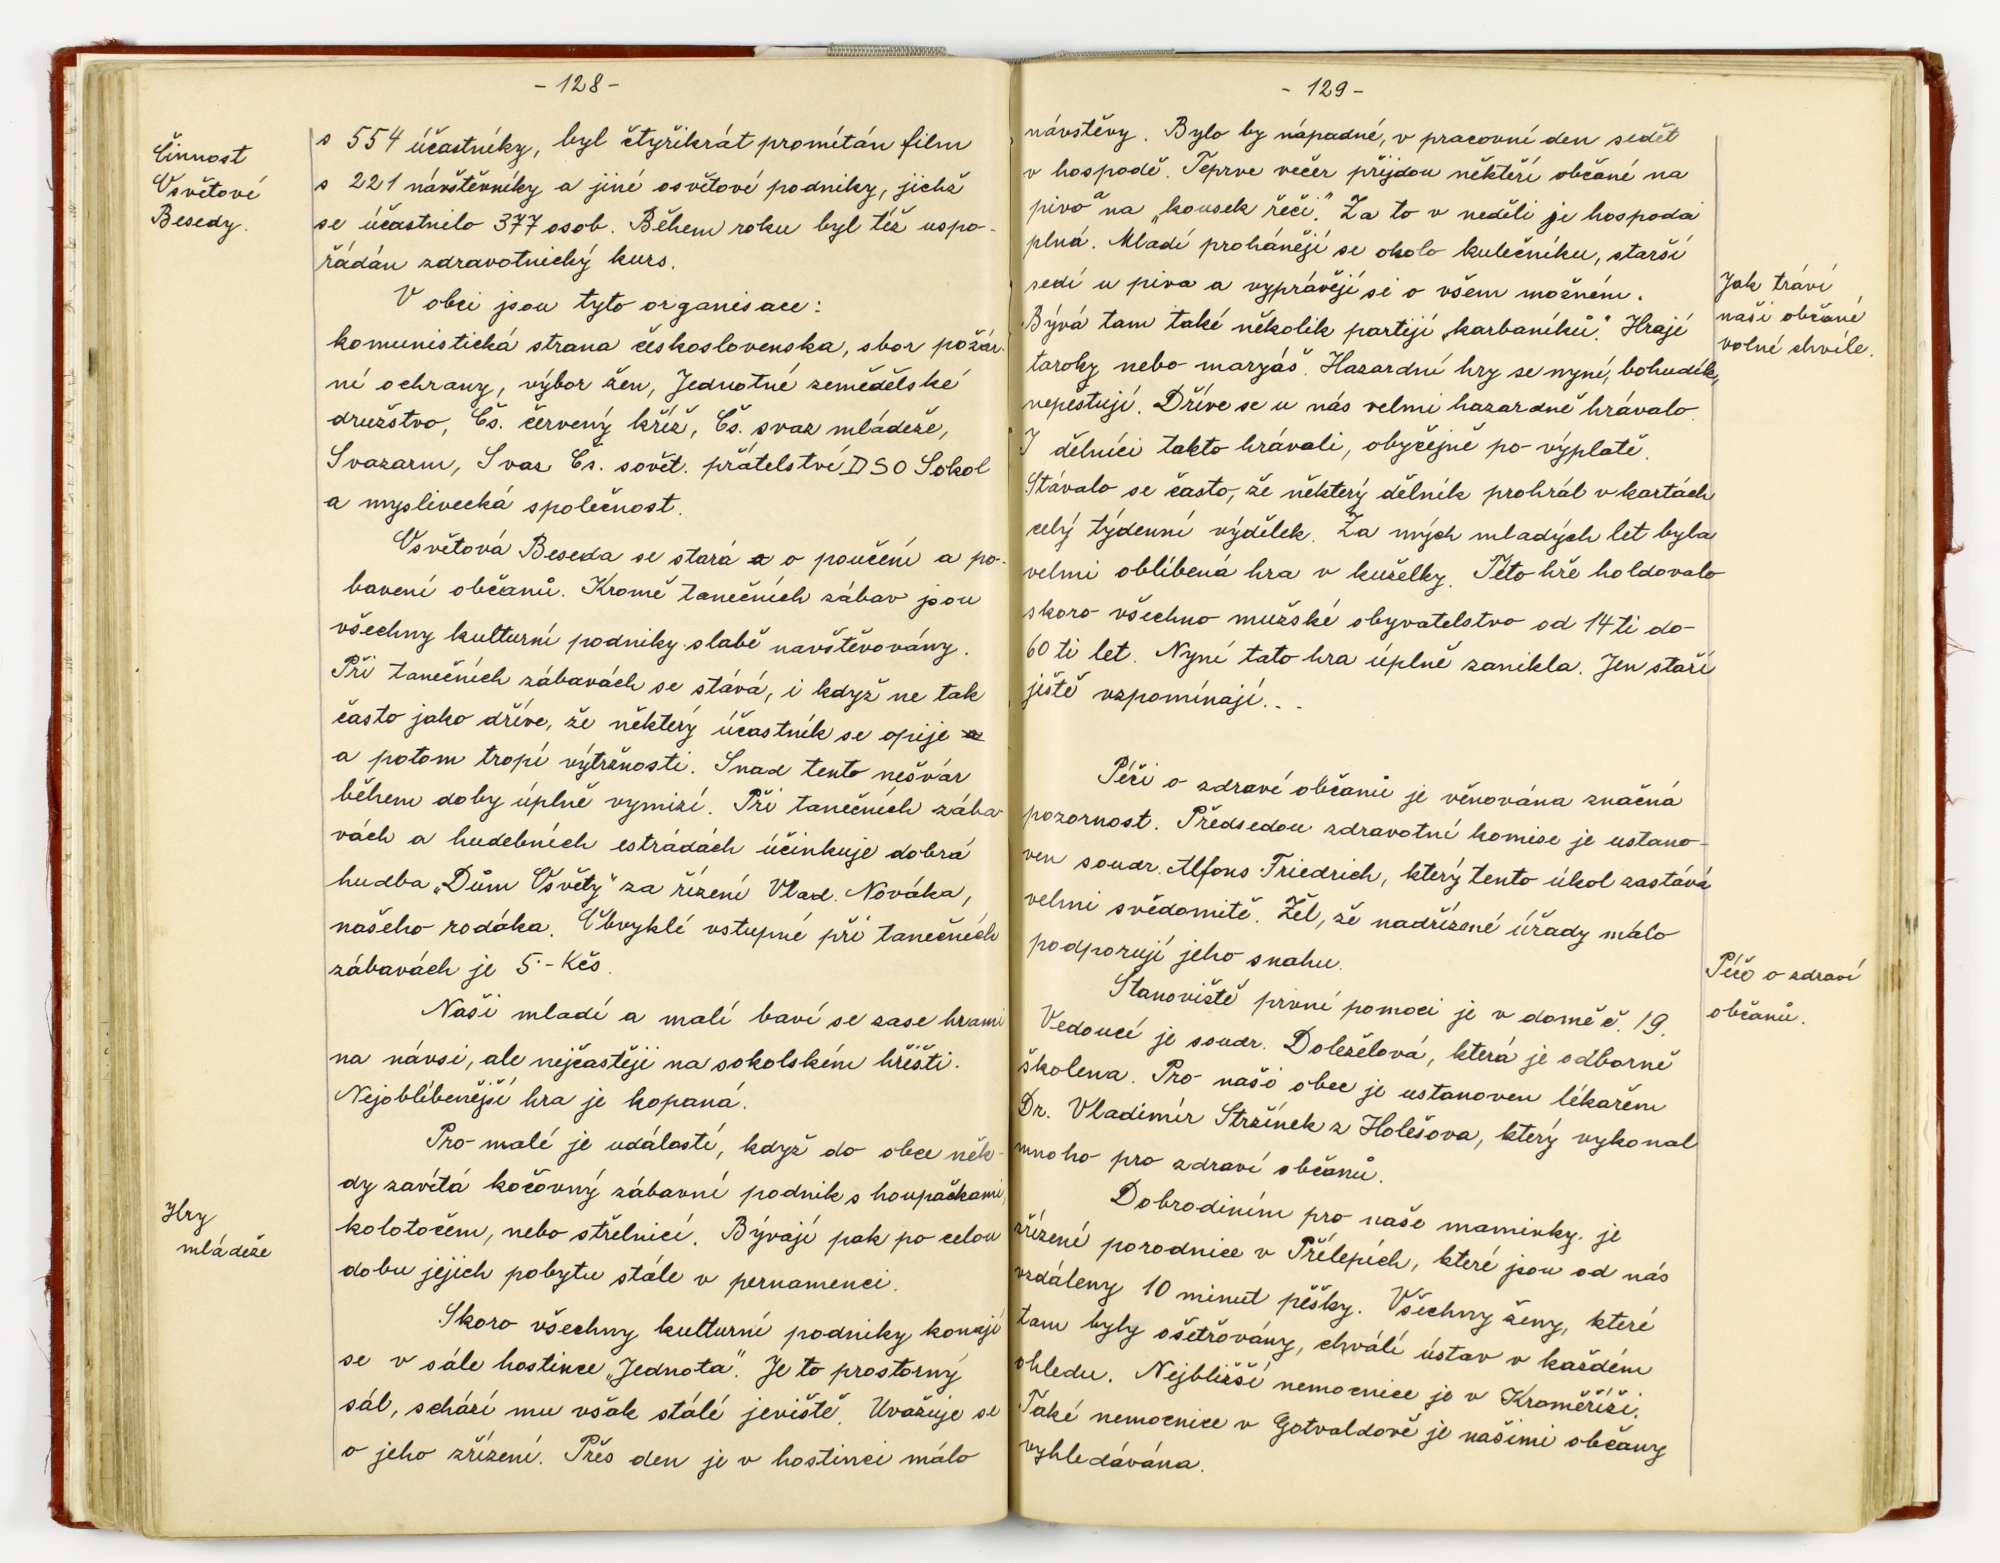 - 128 -
Činnost
Osvětové
Besedy.
s 554 účastníky, byl čtyřikrát promítán film
s 221 návštěvníky a jiné osvětové podniky, jichž
se účastnilo 377 osob. Během roku byl též uspo-
řádán zdravotnický kurs.
V obci jsou tyto organisace:
komunistická strana československa, sbor požár-
ní ochrany, výbor žen, Jednotné zemědělské
družstvo, Čs. červený kříž, Čs. svaz mládeže,
Svazarm, Svaz Čs. sovět. přátelství, DSO Sokol
a myslivecká společnost.
Osvětová Beseda se stará a o poučení a po-
bavení občanů. Kromě tanečních zábav jsou
všechny kulturní podniky slabě navštěvovány.
Při tanečních zábavách se stává, i když ne tak
často jako dříve, že některý účastník se opije a
a potom tropí výtržnosti. Snad tento nešvár
během doby úplně vymizí. Při tanečních zába-
vách a hudebních estrádách účinkuje dobrá
hudba „Dům Osvěty" za řízení Vlad. Nováka,
našeho rodáka. Obvyklé vstupné při tanečních
zábavách je 5.- Kčs.
Naši mladí a malí baví se zase hrami
na návsi, ale nejčastěji na sokolském hřišti.
Nejoblíbenější hra je kopaná.
Pro malé je událostí, když do obce něk-
dy zavítá kočovný zábavní podnik s houpačkami,
kolotočem, nebo střelnicí. Bývají pak po celou
dobu jejich pobytu stále v pernamenci.
Hry
mládeže
Skoro všechny kulturní podniky konají
se v sále hostince „Jednota". Je to prostorný
sál, schází mu však stálé jeviště. Uvažuje se
o jeho zřízení. Přes den je v hostinci málo
- 129 -
návštěvy. Bylo by nápadné, v pracovní den sedět
v hospodě. Teprve večer přijdou někteří občané na
pivo a na „kousek řeči". Za to v neděli je hospoda
plná. Mladí prohánějí se okolo kulečníku, starší
sedí u piva a vyprávějí si o všem možném.
Bývá tam také několik partijí „karbaníků". Hrají
taroky nebo maryáš. Hazardní hry se nyní, bohudík,
nepěstují. Dříve se u nás velmi hazardně hrávalo.
I dělníci takto hrávali, obyčejně po výplatě.
Stávalo se často, že některý dělník prohrál v kartách
celý týdenní výdělek. Za mých mladých let byla
velmi oblíbená hra v kuželky. Této hře holdovalo
skoro všechno mužské obyvatelstvo od 14 ti do
60 ti let. Nyní tato hra úplně zanikla. Jen staří
ještě vzpomínají...
Jak tráví
naši občané
volné chvíle.
Péči o zdraví občanů je věnována značná
pozornost. Předsedou zdravotní komise je ustano-
ven soudr. Alfons Friedrich, který tento úkol zastává
velmi svědomitě. Žel, že nadřízené úřady málo
podporují jeho snahu.
Stanoviště první pomoci je v domě č. 19.
Vedoucí je soudr. Doleželová, která je odborně
školena. Pro naši obec je ustanoven lékařem
Dr. Vladimír Stržínek z Holešova, který vykonal
mnoho pro zdraví občanů.
Péče o zdraví
občanů.
Dobrodiním pro naše maminky je
zřízení porodnice v Přílepích, které jsou od nás
vzdáleny 10 minut pěšky. Všechny ženy, které
tam byly ošetřovány, chválí ústav v každém
ohledu. Nejbližší nemocnice je v Kroměříži.
Také nemocnice v Gotvaldově je našimi občany
vyhledávána.